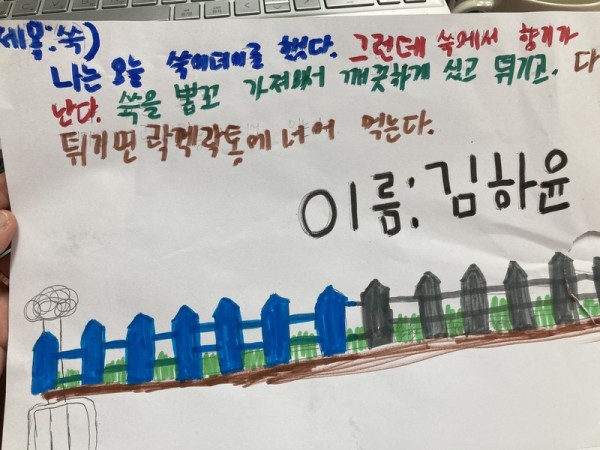 제목:쑥)
나는 오늘 쑥이데이를 했다. 그런데 쑥에서 향기가
난다. 쑥을 뽑꼬 가져와서 깨끗하게 씻고 튀기고. 다
튀기면 락엑락통에 너어 먹는다.
이름:김하윤